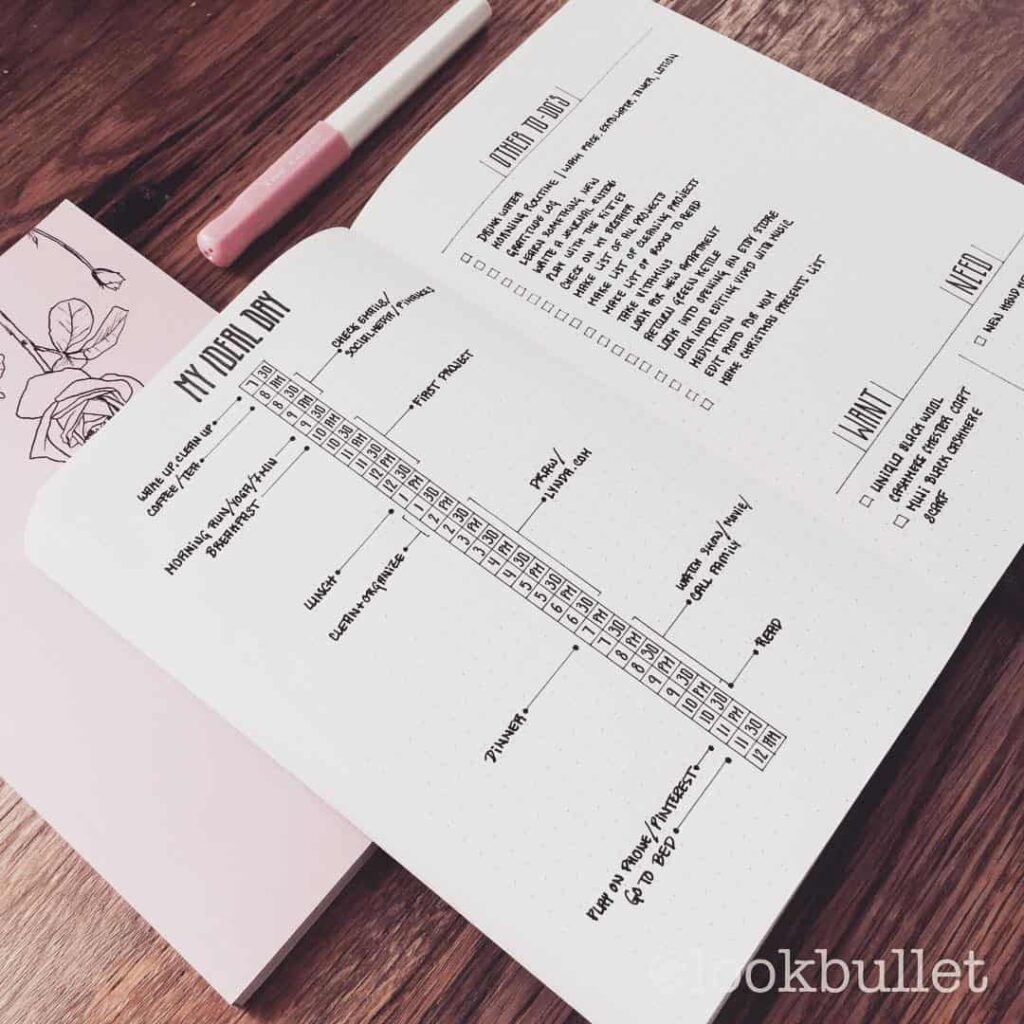 MY IDEAL DAY
CHECK EMAILS/
SOCIAL MEDIA/PINBACKS
FIRST PROJECT
DRAW/
LYNDA.COM
WATCH SHOW/MOVIE/
CALL FAMILY
READ
7 30
8 AM
8 30
9 AM
9 30
10 AM
10 30
11 AM
11 30
12 PM
12 30
1 PM
1 30
2 PM
2 30
3 PM
3 30
4 PM
4 30
5 PM
5 30
6 PM
6 30
7 PM
7 30
8 PM
8 30
9 PM
9 30
10 PM
10 30
11 PM
11 30
12 AM
WAKE UP, CLEAN UP
COFFEE/TEA
MORNING RUN/YOGA/7-MIN
BREAKFAST
LUNCH
CLEAN + ORGANIZE
DINNER
PLAY ON PHONE/PINTEREST
GO TO BED
OTHER TO-DO'S
DRINK WATER
MORNING ROUTINE | WASH FACE, EXFOLIATE, TONER, LOTION
GRATITUDE LOG
LEARN SOMETHING NEW
WRITE A JOURNAL ENTRY
PLAY WITH THE KITTIES
CHECK ON MY BROTHER
MAKE LIST OF ALL PROJECTS
MAKE LIST OF CLEANING PROJECT
MAKE LIST OF BOOKS TO READ
TAKE VITAMINS
LOOK FOR NEW APARTMENT
RETURN GREEN KETTLE
LOOK INTO OPENING AN ETSY STORE
LOOK INTO EDITING VIDEO WITH MUSIC
MEDITATION
EDIT PHOTO FOR MOM
MAKE CHRISTMAS PRESENTS LIST
WANT
UNIQLO BLACK WOOL
CASHMERE CHESTER COAT
MUJI BLACK CASHMERE
SCARF
NEED
NEW HAND
@lookbullet